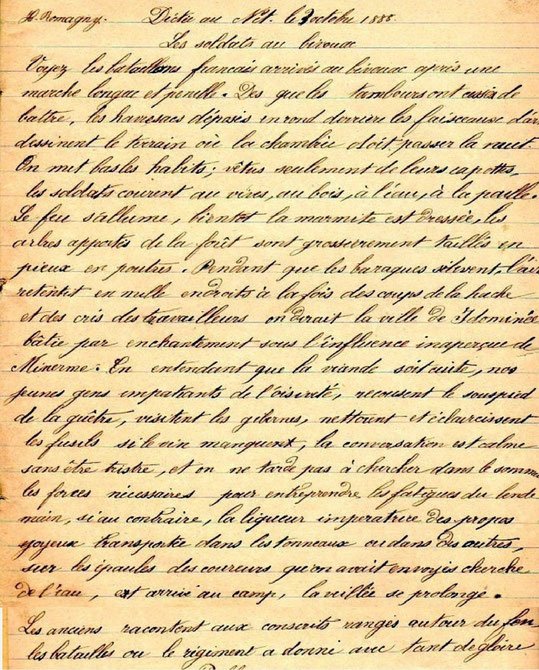 H. Romagny. Dictée au Net. le 9 octobre 1888.
Les soldats au bivouac
Voyez les bataillons français arrivés au bivouac après une
marche longue et penille. Des que les tambours ont cessés de
battre, les havresacs déposés en rond derrière les faisceaux d'ar
dessinent le terrain où la chambrée doit passer la nuit.
On met bas les habits; vêtus seulement de leurs capottes,
les soldats courent au vivres, au bois, à l'eau, à la paille.
Le feu s'allume, bientôt la marmite est dressée, les
arbres apportés de la forêt sont grossièrement taillés en
pieux en poutres. Pendant que les baraques s'élèvent, l'air
retentit en mille endroits à la fois des coups de la hache
et des cris des travailleurs on dirait la ville de Idominée
bâtie par enchantement sous l'influence inaperçue de
Minerme. En entendant que la viande soit cuite, nos
jeunes gens impatients de l'oisiveté, recousent le souspied
de la guêtre, visitent les gibernes, nettoient et éclaircissent
les fusils si le vin manquent, la conversation est calme
sans être triste, et on ne tarde pas à chercher dans le somme
les forces nécessaires pour entreprendre les fatigues du lende
main, si au contraire, la liqueur imperatrice des propos
joyeux transportée dans les tonneaux ou dans des outres,
sur les épaules des coureurs qu'on avait envoyés cherche
de l'eau, est arrivé au camp, la veillée se prolonge.
Les anciens racontent aux conscrits rangés autour du feu
les batailles ou le régiment a donné avec tant de gloire